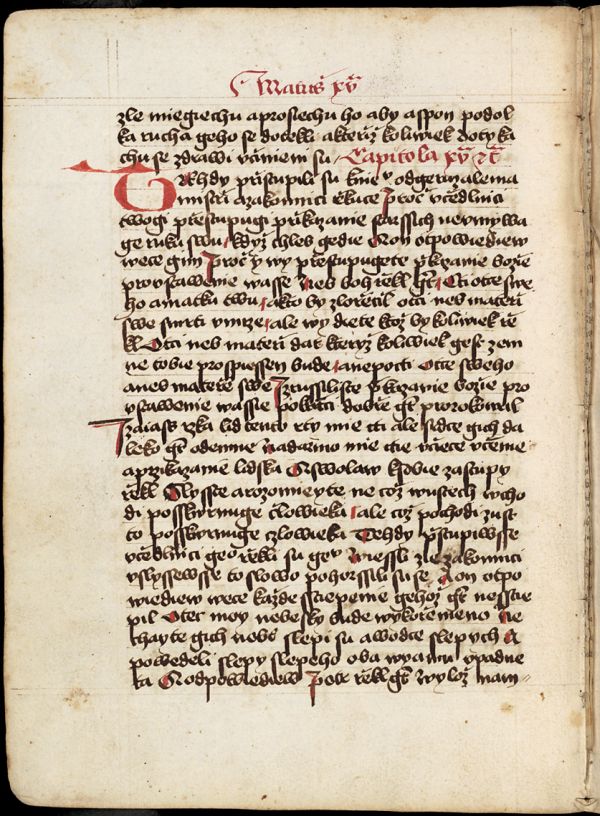 Matus xv
zle miegiechu aprosiechu ho aby aspon podol
ka rucha geho se dotekli akteriz koliwiek dotyka
chu se zdrawi vcinieni su Capitola xv
Tehdy przistupili su kniemu odgeruzalema
mistri azakonnici rzkuce Procz vczedlnici
twogi przestupugi przikazanie starssich neymywa
ge ruku swu kdyz chleb gedie A on otpowiediew
wece gim Procz y wy przestupugete przikazanie bozie
pro vstawenie wasse neb boh rzekl gest Cti otce swe
ho amatku twu akto by zlorzeczil otci neb materzi
swe smrti vmrze ale wy diete ktoz by koliwiek rze
kl Otci neb materzi dar kteryz koliwiek gest zem
ne tobie prospiessen bude anepocti otce sweho
aneb materze swe Izrussiliste przikazanie bozie pro
vstawenie wassie Pokritci dobrze gest prorokowal
Izaiass rzka lid tento rty mie cti ale srdce gich da
leko gest odemne nadarmo mie ctie vciece vczenie
aprzikazanie lidska A swolaw k sobie zastupy
rzekl Slysste arozomieyte ne coz wustech wcho
di posskwrnuge czlowieka ale coz pochodi zust
to posskwrnuge czlowieka Tehdy przistupiwsse
vczedlnici geho rzekli su gemu wiessli zie zakonnici
vslyssewsse to slowo pohorssili su se A on otpo
wiediew wece kazde sczepenie gehoz gest nesscie
pil Otec moy nebesky bude wykorzeneno ne
chayte gich nebo slepi su awodce slepych A
powedeli slepy slepeho oba wyamu vpadne
ta A odpowiediew Petr rzekl gest wyloz nam